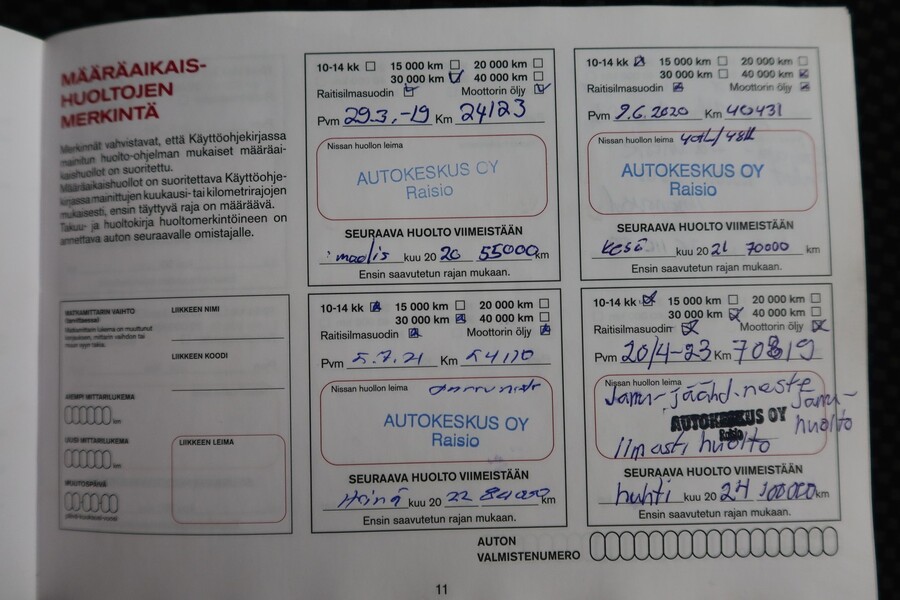 MÄÄRÄAIKAIS-
HUOLTOJEN
MERKINTÄ
Merkinnät vahvistavat, että Käyttöohjekirjassa
mainitun huolto-ohjelman mukaiset määräai-
kaishuollot on suoritettu.
Määräaikaishuollot on suoritettava Käyttöohje-
kirjassa mainittujen kuukausi- tai kilometrirajojen
mukaisesti, ensin täyttyvä raja on määräävä.
Takuu- ja huoltokirja huoltomerkintöineen on
annettava auton seuraavalle omistajalle.
10-14 kk 15 000 km 20 000 km
30 000 km 40 000 km
Raitisilmasuodin Moottorin öljy
Pvm 29.3.-19 Km 24123
Nissan huollon leima
AUTOKESKUS OY
Raisio
SEURAAVA HUOLTO VIIMEISTÄÄN
maalis kuu 20 20 55000 km
Ensin saavutetun rajan mukaan.
10-14 kk 15 000 km 20 000 km
30 000 km 40 000 km
Raitisilmasuodin Moottorin öljy
Pvm 9.6.2020 Km 40431
Nissan huollon leima
AUTOKESKUS OY
Raisio
SEURAAVA HUOLTO VIIMEISTÄÄN
Kesä kuu 20 21 70000 km
Ensin saavutetun rajan mukaan.
MATKAMITTARIN VAIHTO
LIIKKEEN NIMI
LIIKKEEN KOODI
AIEMPI MITTARILUKEMA
km
UUSI MITTARILUKEMA
km
MUUTOSPÄIVÄ
LIIKKEEN LEIMA
10-14 kk 15 000 km 20 000 km
30 000 km 40 000 km
Raitisilmasuodin Moottorin öljy
Pvm 5.7.21 Km 54110
Nissan huollon leima
AUTOKESKUS OY
Raisio
SEURAAVA HUOLTO VIIMEISTÄÄN
Heinä kuu 20 22 84000 km
Ensin saavutetun rajan mukaan.
10-14 kk 15 000 km 20 000 km
30 000 km 40 000 km
Raitisilmasuodin Moottorin öljy
Pvm 20/4-23 Km 70819
Nissan huollon leima
Jarru-jäähd.neste
Jarru-
huolto
AUTOKESKUS OY
Raisio
Ilmasti huolto
SEURAAVA HUOLTO VIIMEISTÄÄN
huhti kuu 20 24 100000 km
Ensin saavutetun rajan mukaan.
AUTON
VALMISTENUMERO
11